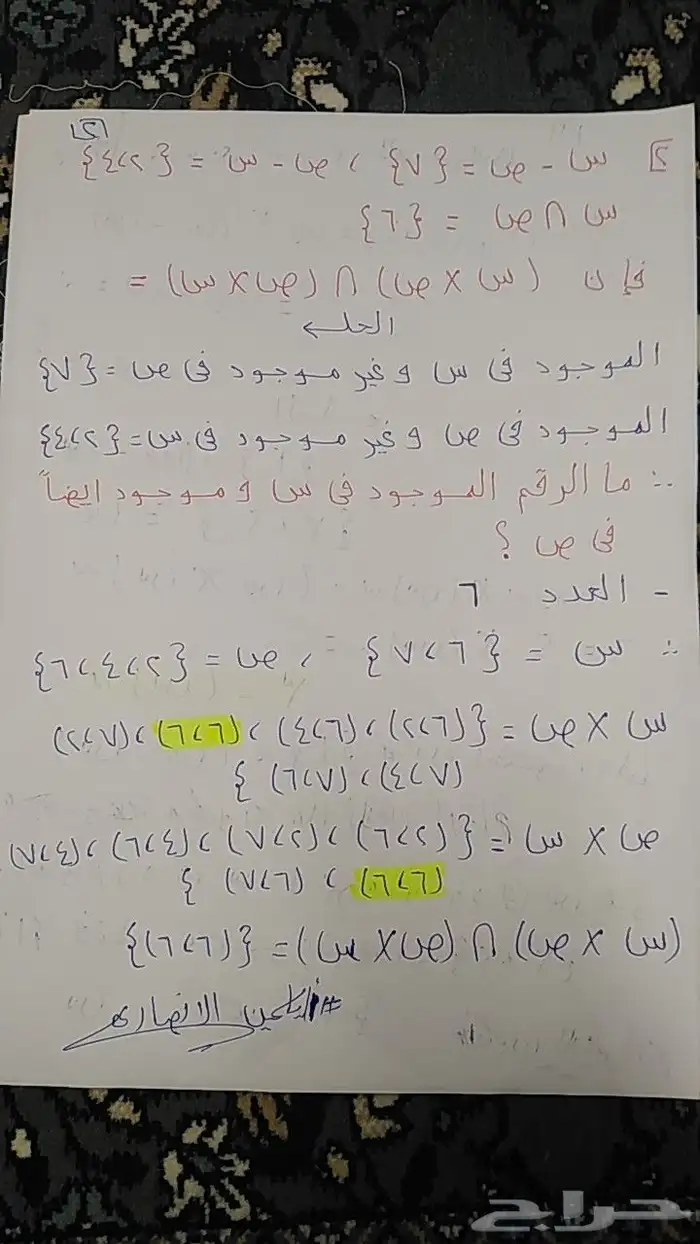 [٢]
٢] س - ص = {٧} ، ص - س = {٢،٤}
س ∩ ص = {٦}
فإن (س × ص) ∩ (ص × س) =
الحل ←
الموجود فى س وغير موجود فى ص = {٧}
الموجود فى ص وغير موجود فى س = {٢،٤}
∴ ما الرقم الموجود فى س وموجود ايضاً
فى ص ؟
- العدد ٦
∴ س = {٦،٧} ، ص = {٢،٤،٦}
س × ص = {(٦،٢)،(٦،٤)،(٦،٦)،(٧،٢)،
(٧،٤)،(٧،٦)}
ص × س = {(٢،٦)،(٢،٧)،(٤،٦)،(٤،٧)،
(٦،٦)،(٦،٧)}
(س × ص) ∩ (ص × س) = {(٦،٦)}
الانصارى
حراج